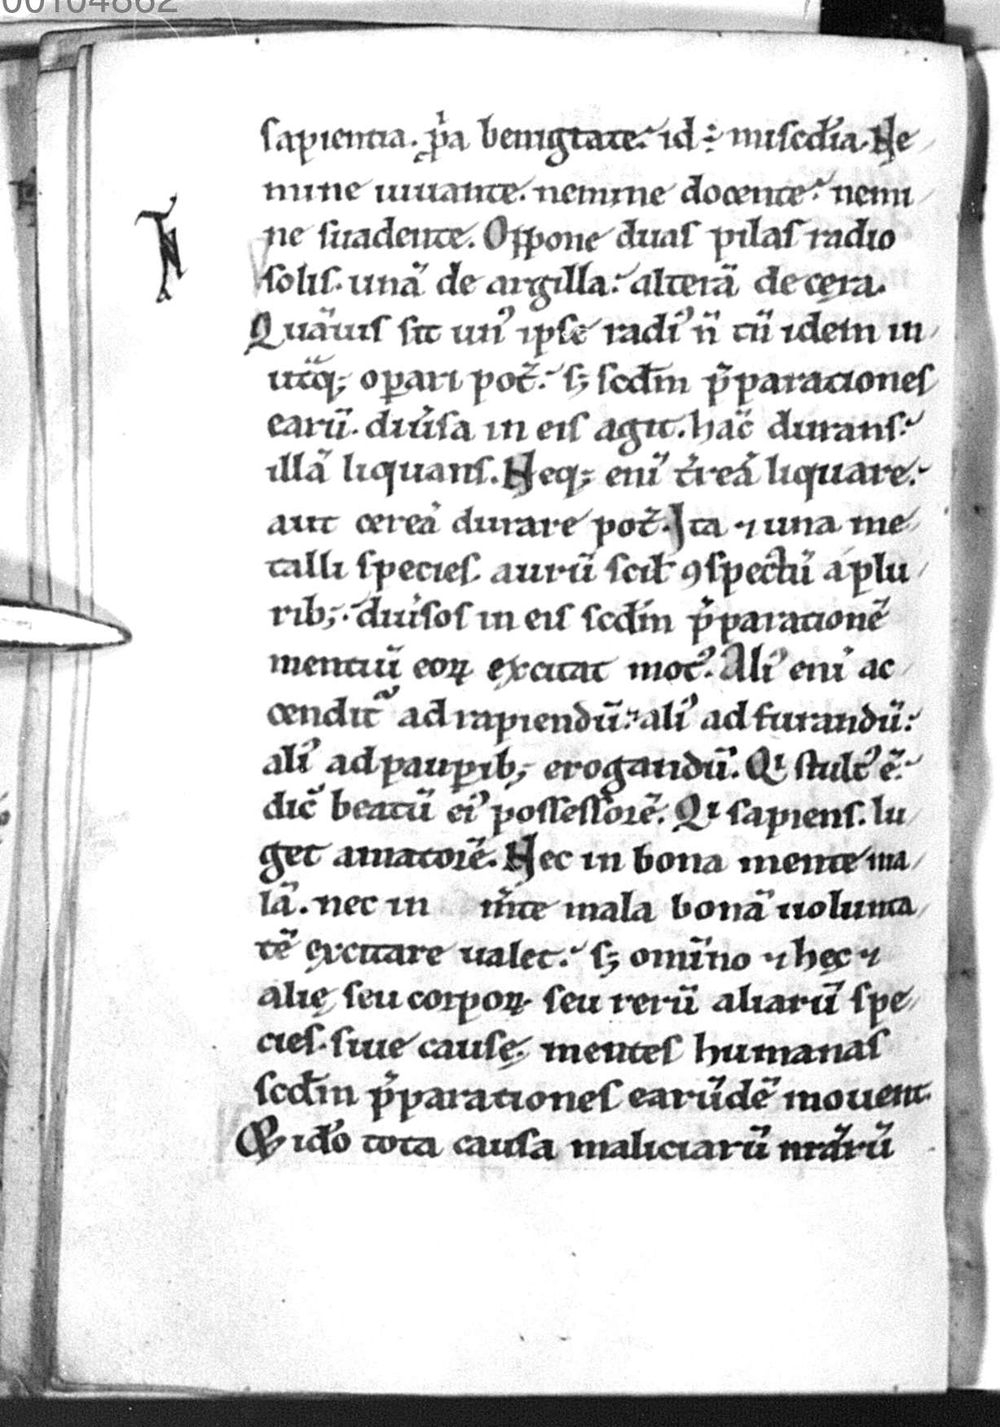 00104862
sapientia. ꝓp̃a benigtate. id ÷ miscd̃ia. Ne
mine iuuante. nemine docente. nemi
ne suadente. Oppone duas pilas radio
solis. unã de argilla. alterã de cęra.
Quãuis sit unꝰ ipse radiꝰ ñ tũ idem in
utq̃; oꝑari pot̃. s; scd̃m p̃parationes
earũ. diũsa in eis agit. hac̃ durans.
illã liquans. Neq; eni t̃reã liquare.
aut cereã durare pot̃. Ita ⁊ una me
talli species. aurũ scil̃ ꝯspectũ a plu
rib;. diũsos in eis scd̃m p̃parationẽ
mentiũ eoꝝ excitat motꝰ. Aliꝰ eni ac
cendit᷑ ad rapiendũ. aliꝰ ad furandũ.
aliꝰ ad pauꝑib; erogandũ. Qi stultꝰ ẽ.
dic̃ beatũ eiꝰ possessorẽ. Qi sapiens. lu
get amatorẽ. Nec in bona mente ma
lã. nec in m̃te mala bonã uolunta
tẽ excitare ualet. s; omĩno ⁊ hęc ⁊
alię seu corpoꝝ seu rerũ aliarũ spe
cies. siue causę. mentes humanas
scd̃m p̃parationes earũdẽ mouent.
Qđ ido tota causa maliciarũ nr̃arũ